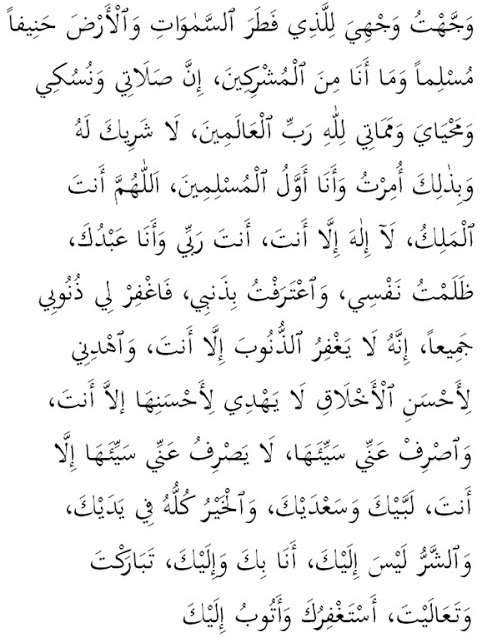 وَجَّهْتُ وَجْهِيَ لِلَّذِي فَطَرَ ٱلسَّمٰوَاتِ وَٱلْأَرْضَ حَنِيفاً
مُسْلِماً وَمَا أَنَا مِنَ ٱلْمُشْرِكِينَ، إِنَّ صَلَاتِي وَنُسُكِي
وَمَحْيَايَ وَمَمَاتِي لِلّٰهِ رَبِّ ٱلْعَالَمِينَ، لَا شَرِيكَ لَهُ
وَبِذٰلِكَ أُمِرْتُ وَأَنَا أَوَّلُ ٱلْمُسْلِمِينَ، اَللّٰهُمَّ أَنتَ
ٱلْمَلِكُ، لَآ إِلٰهَ إِلَّا أَنتَ، أَنتَ رَبِّي وَأَنَا عَبْدُكَ،
ظَلَمْتُ نَفْسِي، وَٱعْتَرَفْتُ بِذَنبِي، فَاغْفِرْ لِي ذُنُوبِي
جَمِيعاً، إِنَّهُ لَا يَغْفِرُ ٱلذُّنُوبَ إِلَّا أَنتَ، وَٱهْدِنِي
لِأَحْسَنِ ٱلْأَخْلَاقِ لَا يَهْدِي لِأَحْسَنِهَا إلاَّ أَنتَ،
وَٱصْرِفْ عَنِّي سَيِّئَهَا، لَا يَصْرِفُ عَنِّي سَيِّئَهَا إِلَّا
أَنتَ، لَبَّيْكَ وَسَعْدَيْكَ، وَٱلْخَيْرُ كُلُّهُ فِي يَدَيْكَ،
وَٱلشَّرُّ لَيْسَ إِلَيْكَ، أَنَا بِكَ وَإِلَيْكَ، تَبَارَكْتَ
وَتَعَالَيْتَ، أَسْتَغْفِرُكَ وَأَتُوبُ إِلَيْكَ